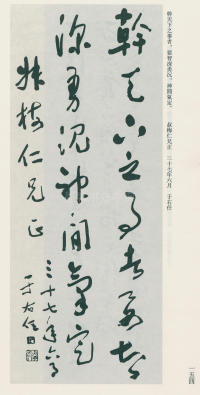 幹天下之事者,要智深勇沉,神閒氣定。 叔梅仁兄正 三十七年六月 于右任
幹天下之事者要智
深勇沈神閒氣定
叔梅仁兄正
三十七年六月
于右任
一五四